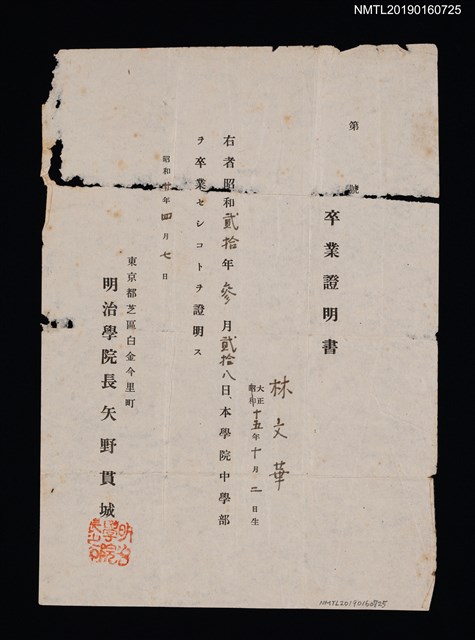 NMTL20190160725
第 號
卒業證明書
林文華
大正
昭和
十五年十月二日生
右者昭和貳拾年參月貳拾八日本學院中學部
ヲ卒業セシコトヲ證明ス
昭和廿年四月七日
東京都芝區白金今里町
明治學院長矢野貫城
明治學院長之印
NMTL20190160725